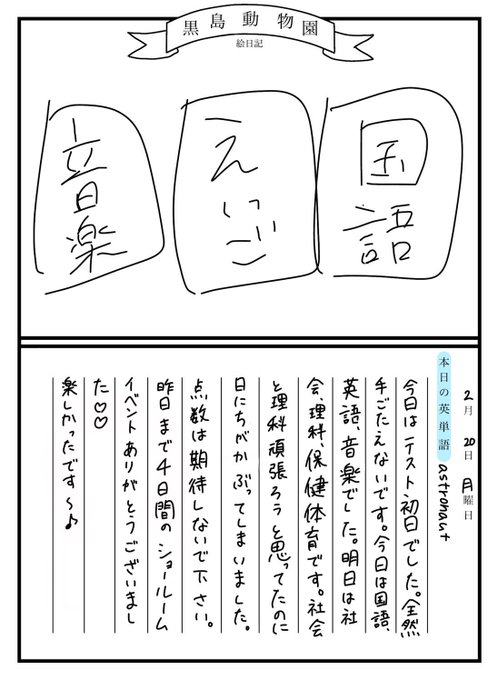 黒島動物園
絵日記
国語
えいご
音楽
2月20日月曜日
本日の英単語 astronaut
今日はテスト初日でした。全然
手ごたえないです。今日は国語、
英語、音楽でした。明日は社
会、理科、保健体育です。社会
と理科頑張ろうと思ってたのに
日にちがかぶってしまいました。
点数は期待しないで下さい。
昨日まで4日間のショールーム
イベントありがとうございまし
た♡♡
楽しかったです〜♪